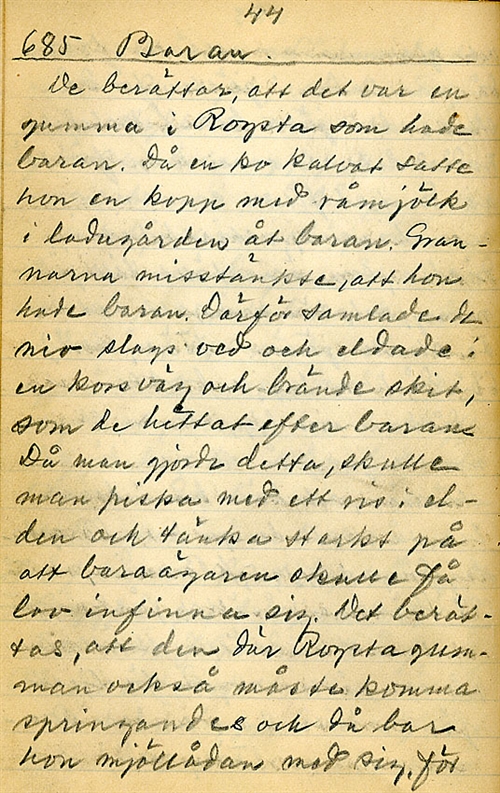 44
685 Baran.
De berättar, att det var en
gumma i Roysta som hade
baran. Då en ko kalvat satte
hon en kopp med råmjölk
i ladugården åt baran. Gran-
narna misstänkte, att hon
hade baran. Därför samlade de
nio slags ved och eldade i
en korsväg och brände skit,
som de hittat efter baran.
Då man gjorde detta, skulle
man piska med ett ris i el-
den och tänka starkt på
att baraägaren skulle få
lov infinna sig. Det berät-
tas, att den där Roystagum-
man också måste komma
springandes och då bar
hon mjöllådan med sig, för